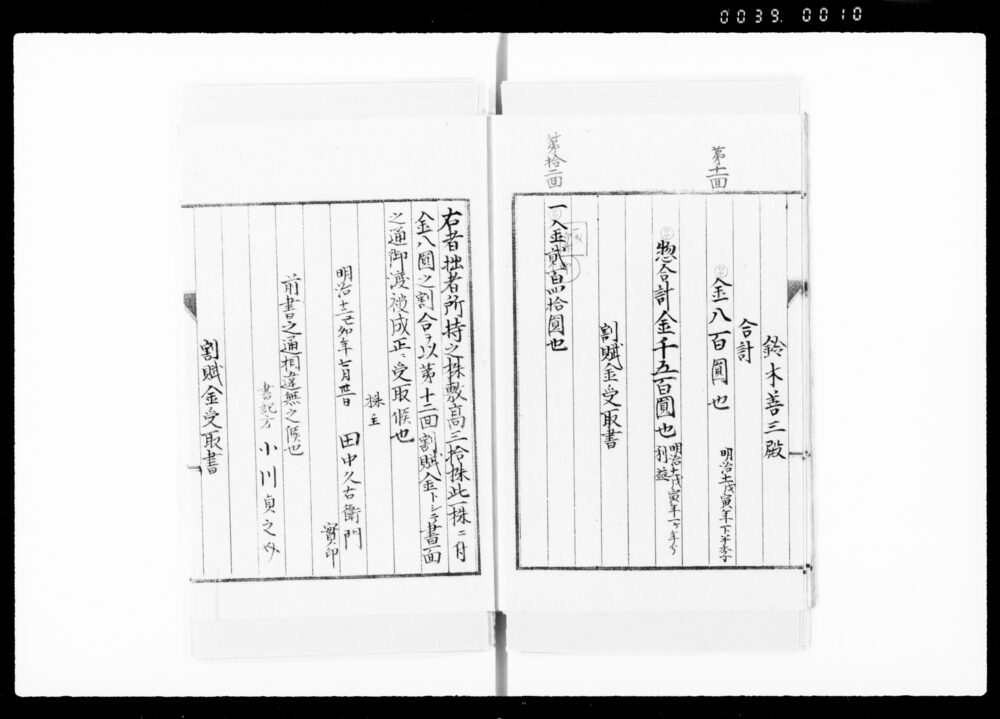 0039. 0010
鈴木善三殿
合計
第十一面
金八百圓也 明治十一戊寅年下半季分
惣合計金千五百圓也 明治十一戊寅年一ヶ年分
利益
割賦金受取書
第拾二面
一入金貳百四拾圓也
右者拙者所持之株敷高三拾株此一株ニ付
金八圓之割合ヲ以第十二面割賦金トシテ書面
之通御渡被成正ニ受取候也
株主
明治十二己卯年七月廿日 田中久右衛門
實印
前書之通相違無之候也
書記方 小川貞之
割賦金受取書